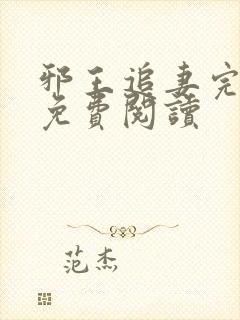 邪王追妻完
免費閱讀
范杰